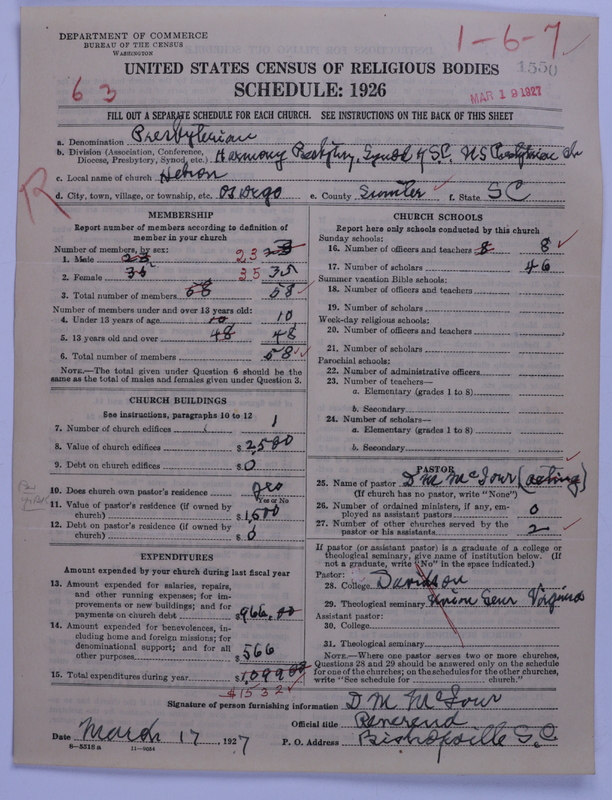 DEPARTMENT OF COMMERCE
BUREAU OF THE CENSUS
WASHINGTON
1-6-7
1550
UNITED STATES CENSUS OF RELIGIOUS BODIES
63
SCHEDULE: 1926
MAR 19 1927
FILL OUT A SEPARATE SCHEDULE FOR EACH CHURCH. SEE INSTRUCTIONS ON THE BACK OF THIS SHEET
a. Denomination Presbyterian
b. Division (Association, Conference, Diocese, Presbytery, Synod, etc.) Harmony Presbytery, Synod of SC. US Presbyterian Ch
c. Local name of church Hebron
R
d. City, town, village, or township, etc. Oswego e. County Sumter f. State SC
MEMBERSHIP
Report number of members according to definition of member in your church
Number of members, by sex:
1. Male 23 23
2. Female 35 35 35
3. Total number of members 58 58
Number of members under and over 13 years old:
4. Under 13 years of age 10 10
5. 13 years old and over 48 48
6. Total number of members 58
NOTE.—The total given under Question 6 should be the same as the total of males and females given under Question 3.
CHURCH BUILDINGS
See instructions, paragraphs 10 to 12
7. Number of church edifices 1
8. Value of church edifices $ 2500
9. Debt on church edifices $ 0
10. Does church own pastor's residence yes
Yes or No
11. Value of pastor's residence (if owned by church) $ 1,500
12. Debt on pastor's residence (if owned by church) $ 0
EXPENDITURES
Amount expended by your church during last fiscal year
13. Amount expended for salaries, repairs, and other running expenses; for improvements or new buildings; and for payments on church debt $ 966.00
14. Amount expended for benevolences, including home and foreign missions; for denominational support; and for all other purposes $ 566
15. Total expenditures during year $
$1532
CHURCH SCHOOLS
Report here only schools conducted by this church
Sunday schools:
16. Number of officers and teachers 8 8
17. Number of scholars 46
Summer vacation Bible schools:
18. Number of officers and teachers
19. Number of scholars
Week-day religious schools:
20. Number of officers and teachers
21. Number of scholars
Parochial schools:
22. Number of administrative officers
23. Number of teachers—
a. Elementary (grades 1 to 8)
b. Secondary
24. Number of scholars—
a. Elementary (grades 1 to 8)
b. Secondary
PASTOR
25. Name of pastor D M (acting)
(If church has no pastor, write "None")
26. Number of ordained ministers, if any, employed as assistant pastors 0
27. Number of other churches served by the pastor or his assistants 2
If pastor (or assistant pastor) is a graduate of a college or theological seminary, give name of institution below. (If not a graduate, write "No" in the space indicated.)
Pastor:
28. College Davidson
29. Theological seminary Union Sem Virginia
Assistant pastor:
30. College
31. Theological seminary
NOTE.—Where one pastor serves two or more churches, Questions 28 and 29 should be answered only on the schedule for one of the churches; on the schedules for the other churches, write "See schedule for church."
Signature of person furnishing information D M
Official title Reverend
Date March 17, 1927 P. O. Address Bishopville S.C.
8-5518a 11-9054